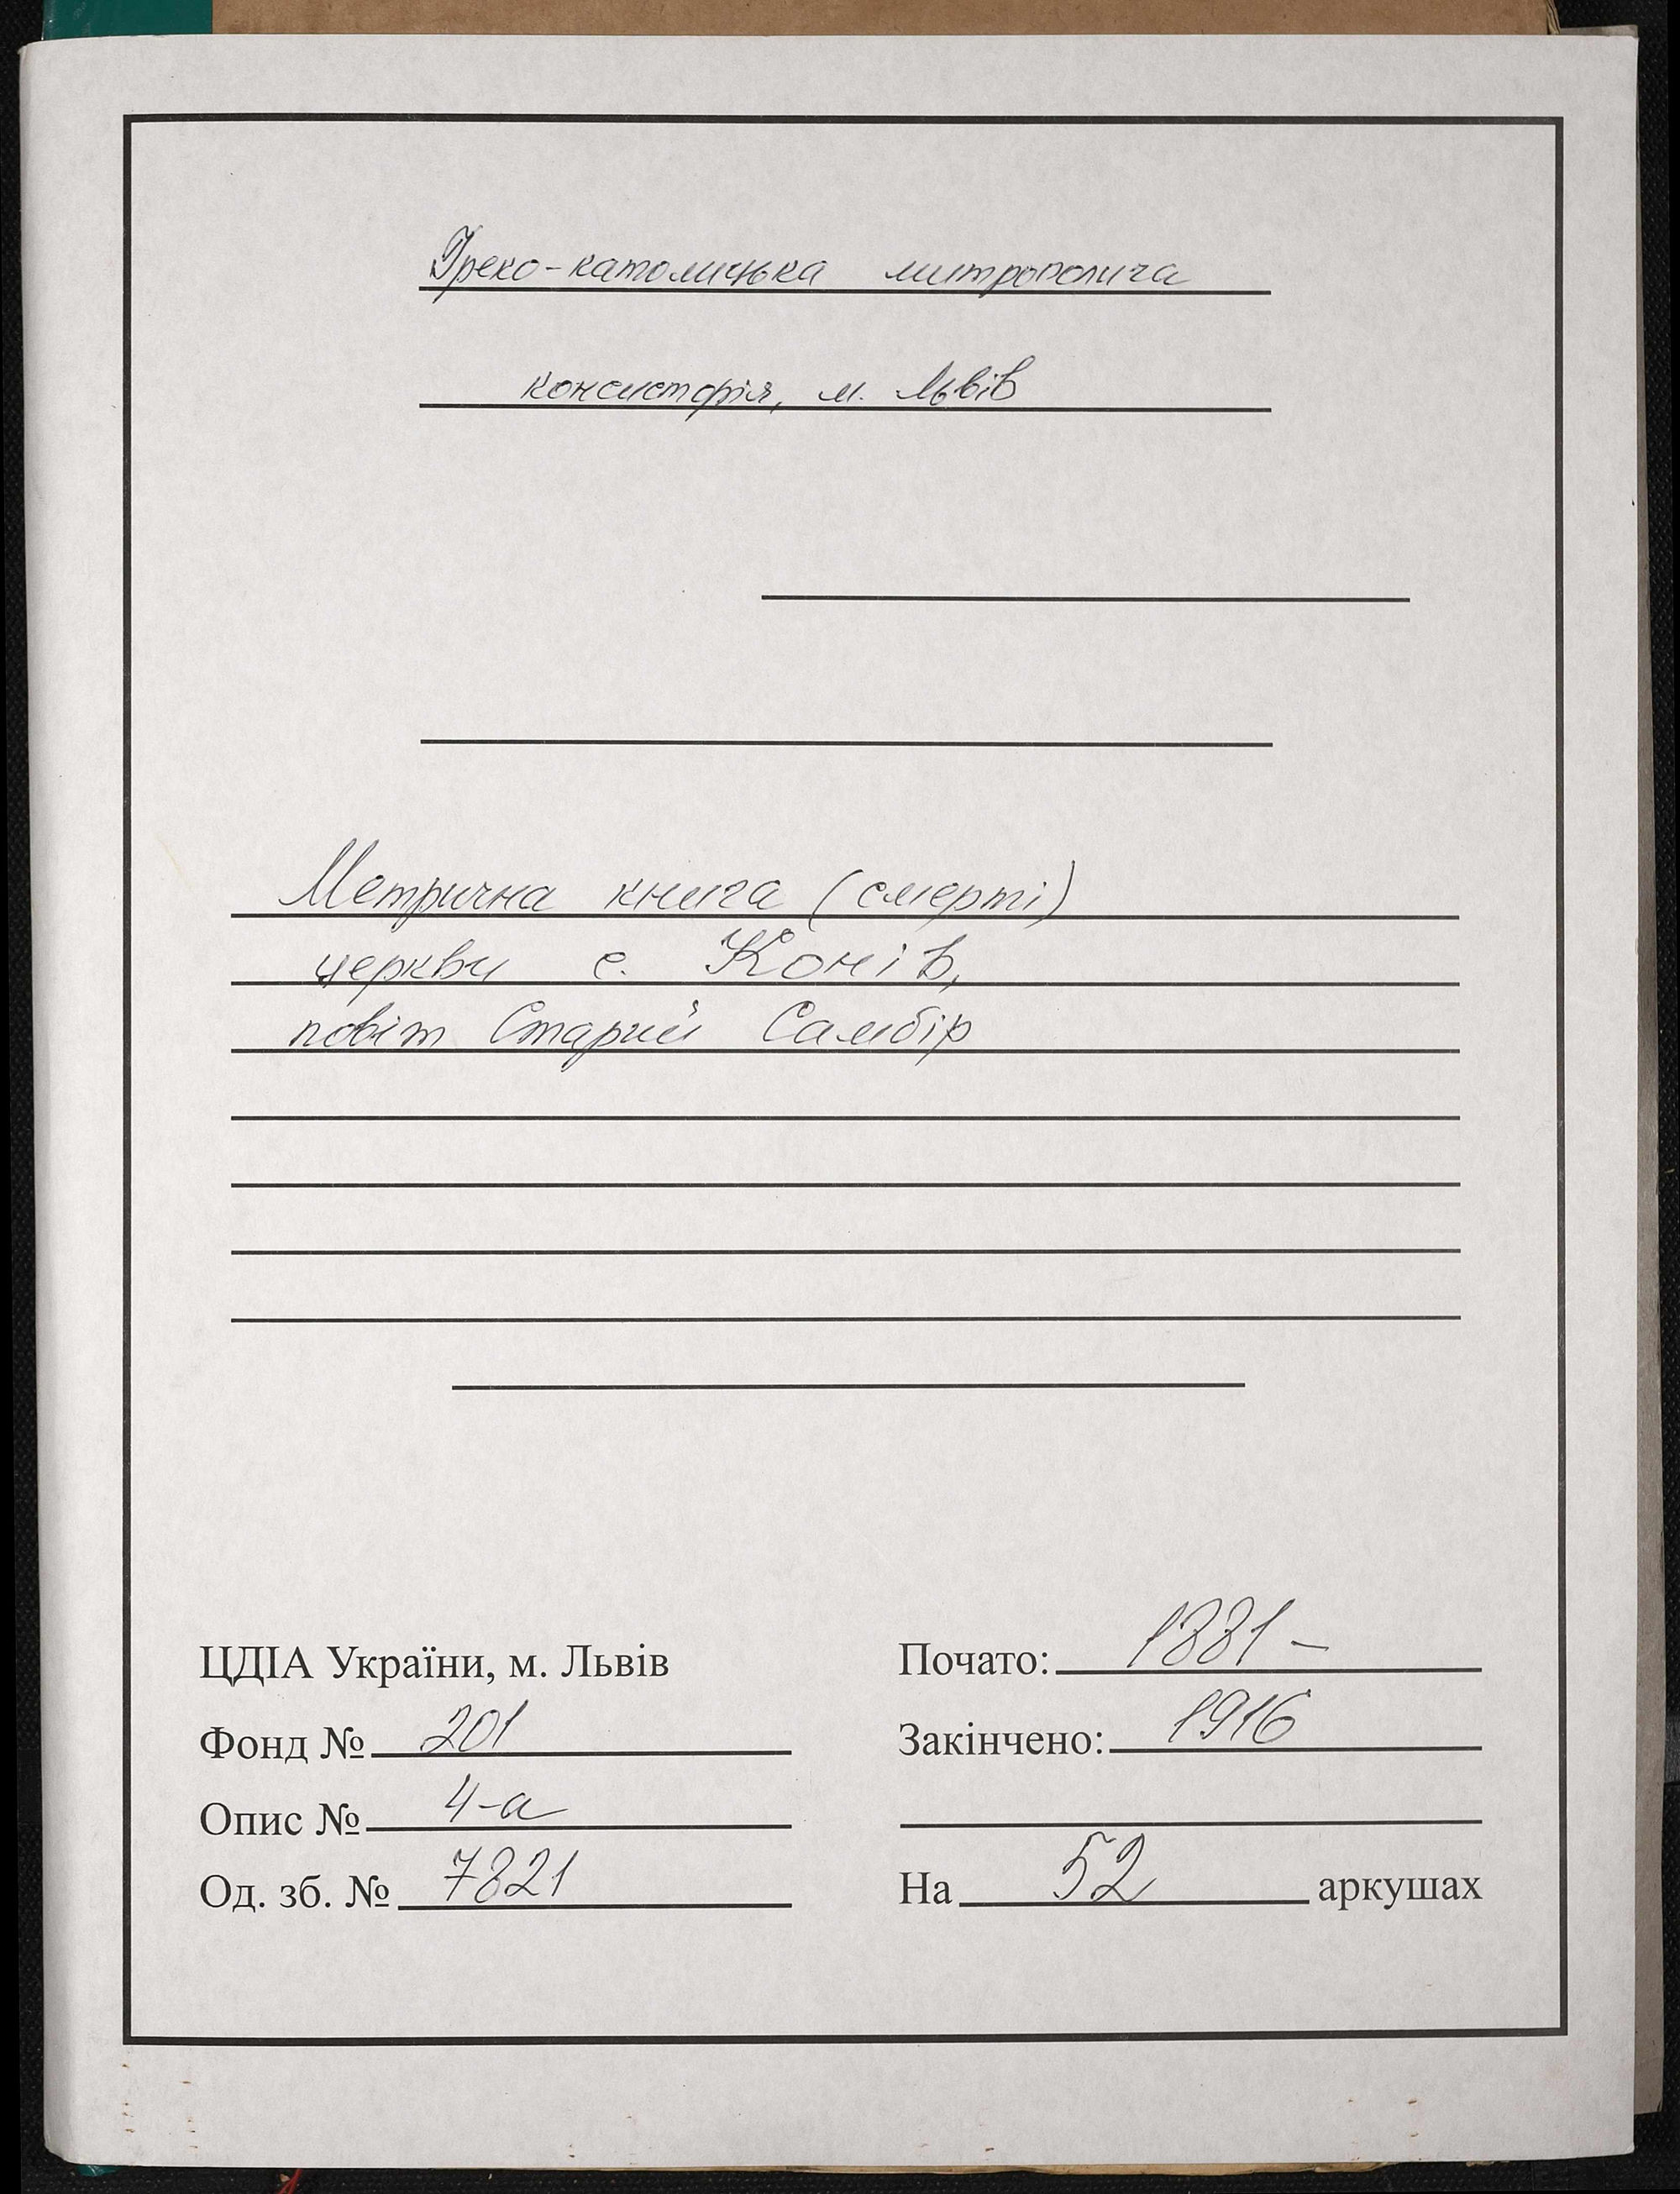 Греко-католицька митрополича
консисторія, м. Львів
Метрична книга (смерті)
церкви с. Конів,
повіт Старий Самбір
ЦДІА України, м. Львів
Почато: 1881 –
Фонд № 201
Закінчено: 1916
Опис № 4-а
Од. зб. № 7821
На 52 аркушах